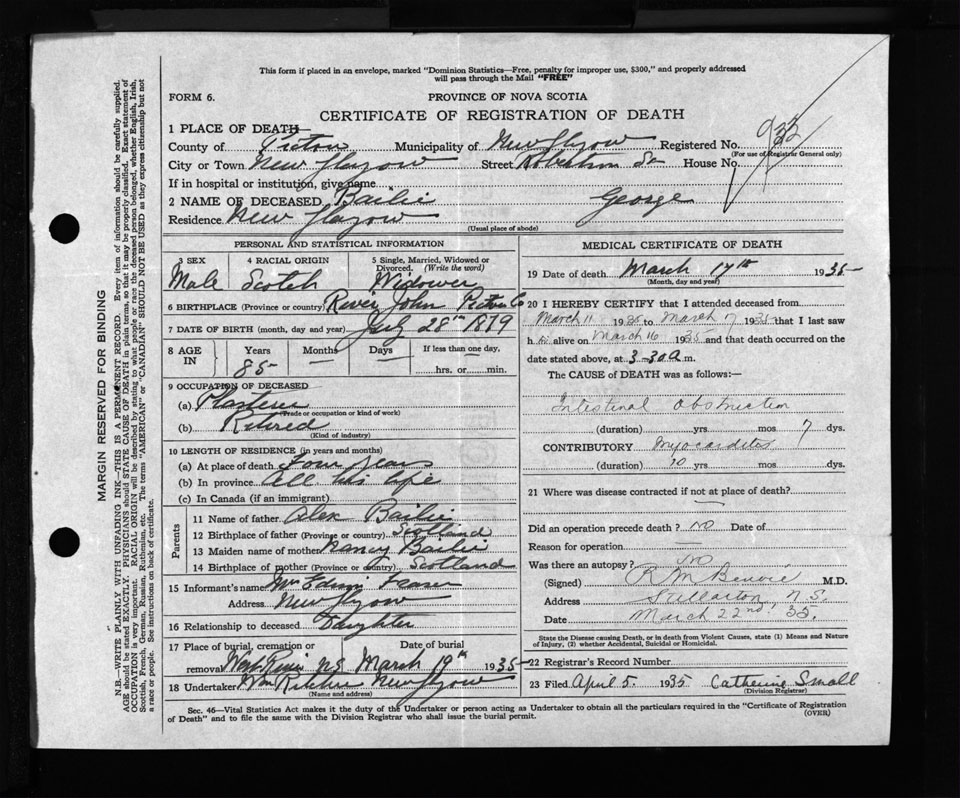 This form if placed in an envelope, marked "Dominion Statistics—Free, penalty for improper use, $300," and properly addressed
will pass through the Mail "FREE"
FORM 6.
PROVINCE OF NOVA SCOTIA
CERTIFICATE OF REGISTRATION OF DEATH
1 PLACE OF DEATH—
County of Pictou Municipality of New Glasgow Registered No.
(For use of Registrar General only)
City or Town New Glasgow Street House No.
If in hospital or institution, give name
2 NAME OF DECEASED Bailie George
Residence New Glasgow
(Usual place of abode)
PERSONAL AND STATISTICAL INFORMATION
3 SEX 4 RACIAL ORIGIN 5 Single, Married, Widowed or Divorced. (Write the word)
Male Scotch Widower
6 BIRTHPLACE (Province or country) River John Pictou Co
7 DATE OF BIRTH (month, day and year) July 28th 1879
8 AGE IN Years Months Days If less than one day,
85 — — hrs. or min.
9 OCCUPATION OF DECEASED
(a) Plasterer
(Trade or occupation or kind of work)
(b) Retired
(Kind of industry)
10 LENGTH OF RESIDENCE (in years and months)
(a) At place of death Four years
(b) In province All his life
(c) In Canada (if an immigrant)
Parents
11 Name of father Alex Bailie
12 Birthplace of father (Province or country) Scotland
13 Maiden name of mother Nancy Bailie
14 Birthplace of mother (Province or country) Scotland
15 Informant's name Mrs Edwin Fraser
Address New Glasgow
16 Relationship to deceased Daughter
17 Place of burial, cremation or removal Date of burial
West River N.S. March 19th 1935
18 Undertaker Wm New Glasgow
(Name and address)
MEDICAL CERTIFICATE OF DEATH
19 Date of death March 17th 1935
(Month, day and year)
20 I HEREBY CERTIFY that I attended deceased from
March 11 1935 to March 7 1935 that I last saw
h is alive on March 16 1935 and that death occurred on the
date stated above, at 3-30 a m.
The CAUSE of DEATH was as follows:—
Intestinal Obstruction
(duration) yrs mos 7 dys.
CONTRIBUTORY Myocarditis
(duration) 10 yrs mos dys.
21 Where was disease contracted if not at place of death?
—
Did an operation precede death? no Date of
Reason for operation —
Was there an autopsy? no
(Signed) R M Benvie M.D.
Address Stellarton N.S.
Date March 22nd, 35.
State the Disease causing Death, or in death from Violent Causes, state (1) Means and Nature
of Injury, (2) whether Accidental, Suicidal or Homicidal.
22 Registrar's Record Number
23 Filed April 5. 1935 Catherine Small
(Division Registrar)
Sec. 46—Vital Statistics Act makes it the duty of the Undertaker or person acting as Undertaker to obtain all the particulars required in the "Certificate of Registration
of Death" and to file the same with the Division Registrar who shall issue the burial permit.
(OVER)
MARGIN RESERVED FOR BINDING
N.B.—WRITE PLAINLY WITH UNFADING INK—THIS IS A PERMANENT RECORD. Every item of information should be carefully supplied.
AGE should be stated EXACTLY. PHYSICIANS should STATE CAUSE OF DEATH in plain terms, so that it may be properly classified. Exact statement of
OCCUPATION is very important. RACIAL ORIGIN will be described by stating to what people or race the deceased person belonged, whether English, Irish,
Scottish, French, German, Russian, Ruthenian, etc. The terms "AMERICAN" or "CANADIAN" SHOULD NOT BE USED as they express citizenship but not
a race or people. See instructions on back of certificate.